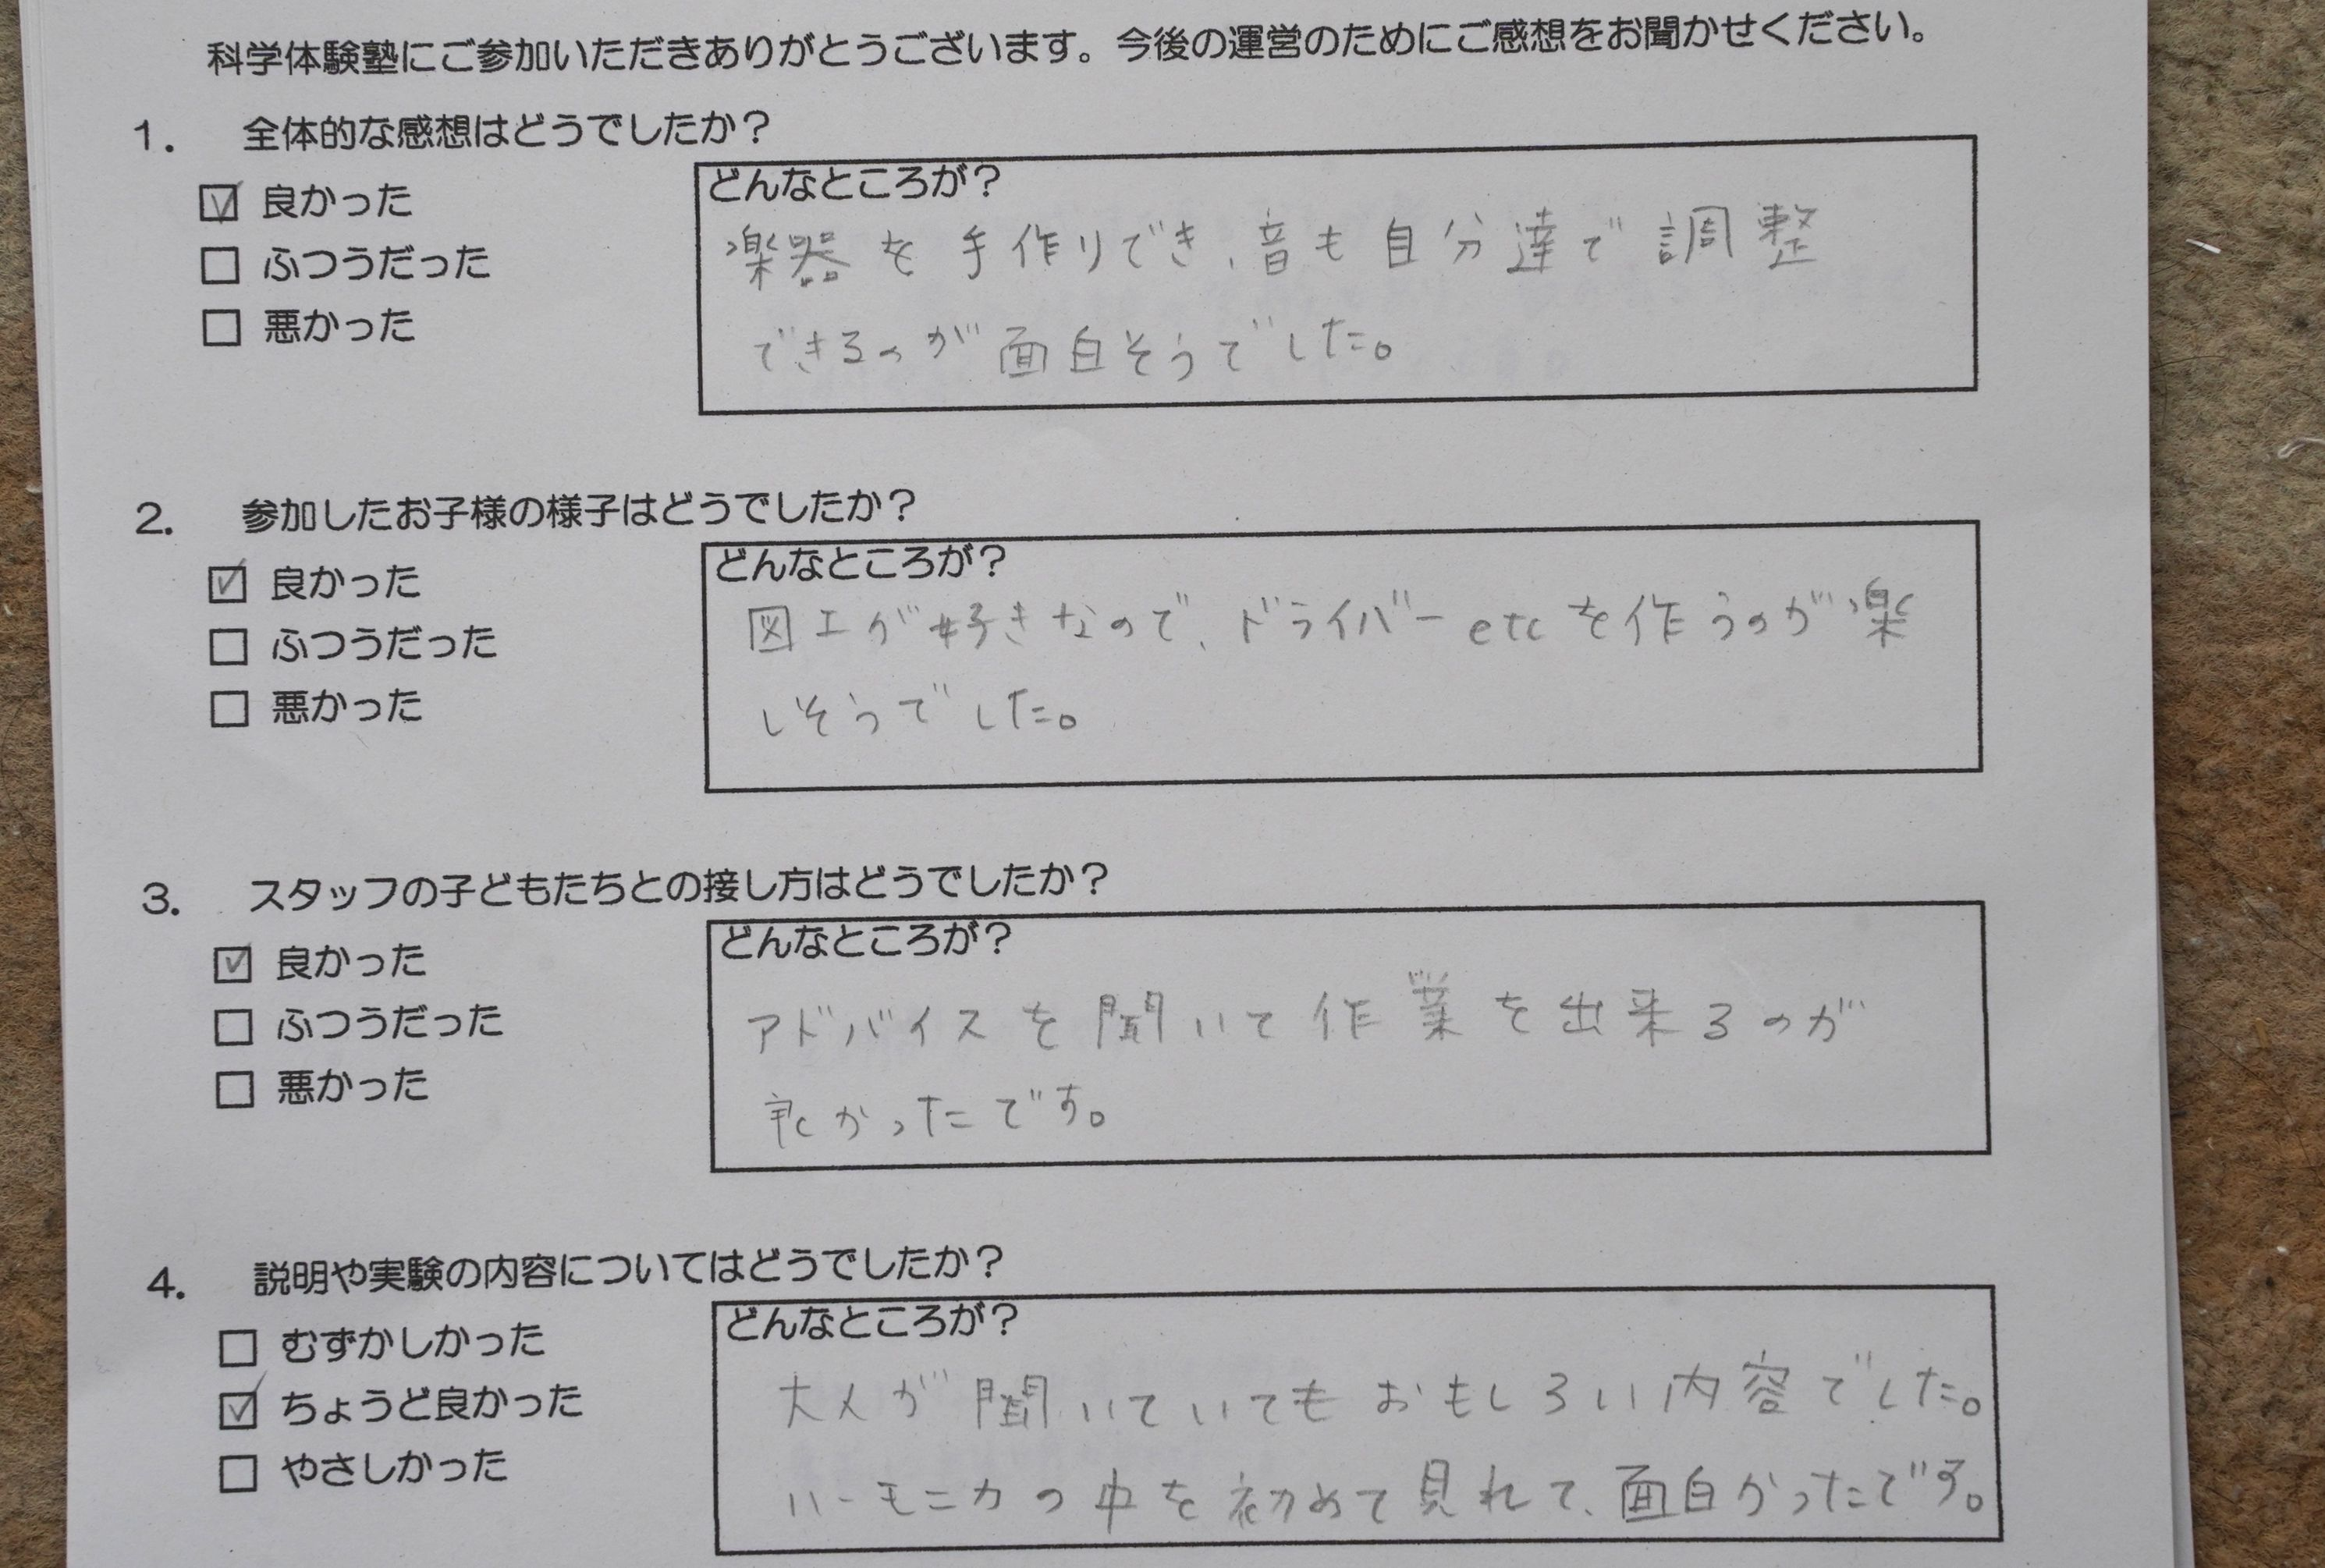 科学体験塾にご参加いただきありがとうございます。今後の運営のためにご感想をお聞かせください。
1. 全体的な感想はどうでしたか?
☑ 良かった
☐ ふつうだった
☐ 悪かった
どんなところが?
楽器を手作りでき、音も自分達で調整
できるのが面白そうでした。
2. 参加したお子様の様子はどうでしたか?
☑ 良かった
☐ ふつうだった
☐ 悪かった
どんなところが?
図工が好きなので、ドライバーetcを作うのが楽
しそうでした。
3. スタッフの子どもたちとの接し方はどうでしたか?
☑ 良かった
☐ ふつうだった
☐ 悪かった
どんなところが?
アドバイスを聞いて作業を出来るのが
良かったです。
4. 説明や実験の内容についてはどうでしたか?
☐ むずかしかった
☑ ちょうど良かった
☐ やさしかった
どんなところが?
大人が聞いていてもおもしろい内容でした。
ハーモニカの中を初めて見れて、面白かったです。